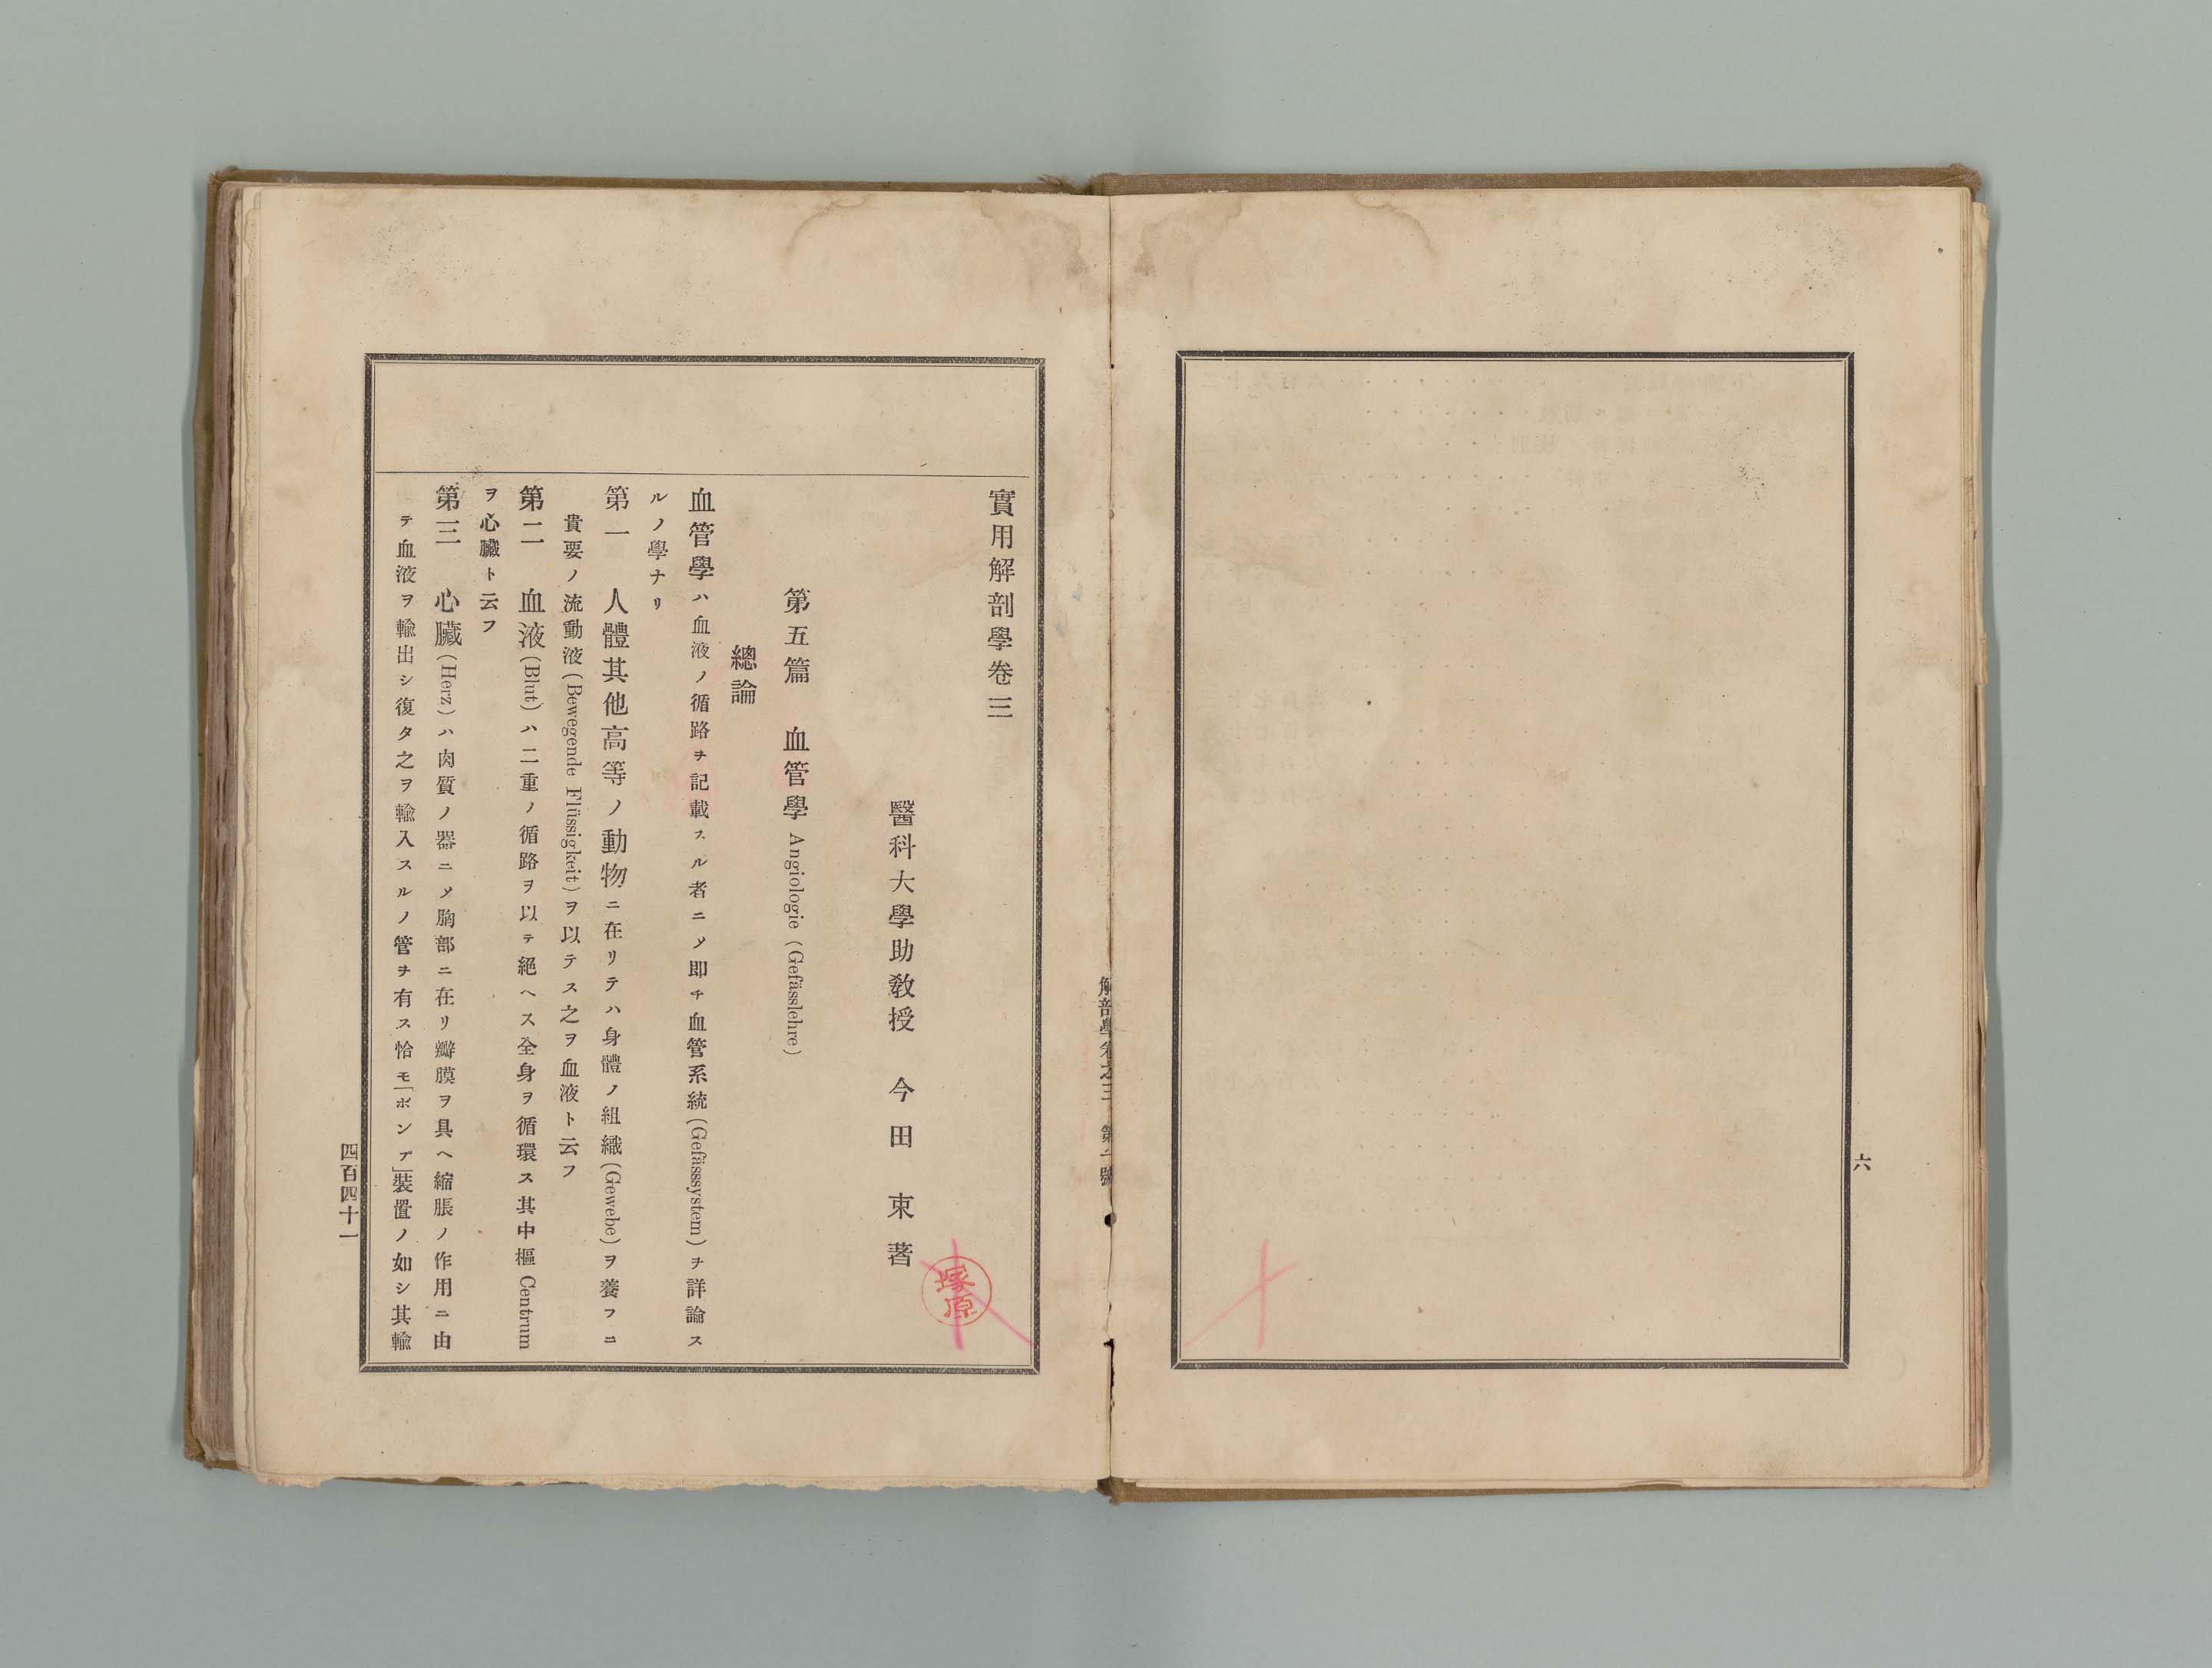 六
解剖學卷之三 第一號
實用解剖學卷三
醫科大學助教授 今田束著
塚原
第五篇 血管學 Angiologie (Gefässlehre)
總論
血管學ハ血液ノ循路ヲ記載スル者ニ〆即チ血管系統(Gefässsystem)ヲ詳論ス
ルノ學ナリ
第一 人體其他高等ノ動物ニ在リテハ身體ノ組織(Gewebe)ヲ養フニ
貴要ノ流動液(Bewegende Flüssigkeit)ヲ以テス之ヲ血液ト云フ
第二 血液(Blut)ハ二重ノ循路ヲ以テ絕ヘス全身ヲ循環ス其中樞Centrum
ヲ心臟ト云フ
第三 心臟(Herz)ハ肉質ノ器ニ〆胸部ニ在リ瓣膜ヲ具ヘ縮脹ノ作用ニ由
テ血液ヲ輸出シ復タ之ヲ輸入スルノ管ヲ有ス恰モ「ポンプ」裝置ノ如シ其輸
四百四十一